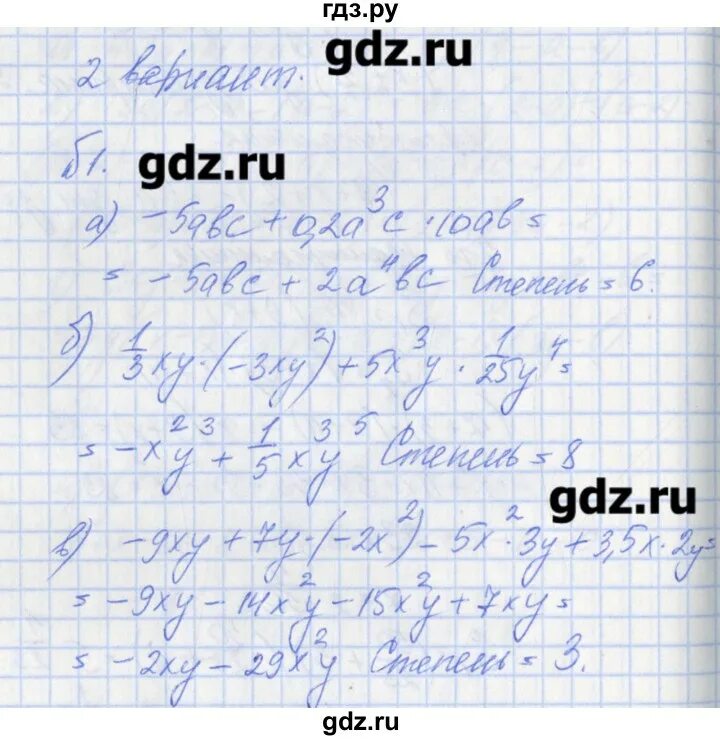 гдз.ру
gdz.ru
2 вариант.
Б1. gdz.ru
а) -5abc + 0,2a³c · 10ab =
= -5abc + 2a⁴bc Степень = 6.
б) 1/3xy · (-3xy²) + 5x³y · 1/25y⁴ =
= -x²y³ + 1/5x³y⁵ Степень = 8
gdz.ru
в) -9xy + 7y · (-2x²) - 5x² · 3y + 3,5x · 2y =
= -9xy - 14x²y - 15x²y + 7xy =
= -2xy - 29x²y Степень = 3.
gdz.ru